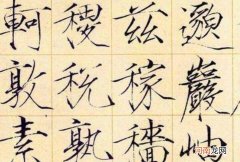 邈巖岫
茲稼穡
稷税孰
軻敦素